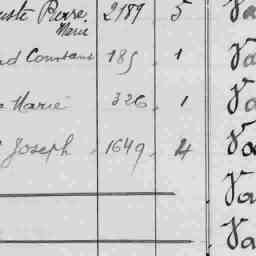 Pierre 2189 5 Va
Marie
Constant 185 1 Va
Marie 326 1 Va
Joseph 1649 4 Va
Va
Va